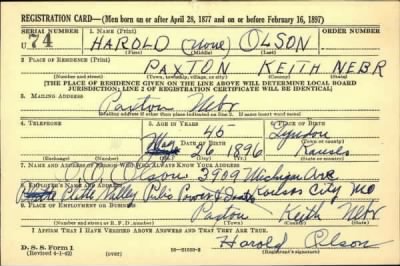 REGISTRATION CARD—(Men born on or after April 28, 1877 and on or before February 16, 1897)
SERIAL NUMBER 1. NAME (Print) ORDER NUMBER
U 74 HAROLD (None) OLSON
(First) (Middle) (Last)
2. PLACE OF RESIDENCE (Print)
PAXTON KEITH NEBR
(Number and street) (Town, township, village, or city) (County) (State)
[THE PLACE OF RESIDENCE GIVEN ON THE LINE ABOVE WILL DETERMINE LOCAL BOARD
JURISDICTION; LINE 2 OF REGISTRATION CERTIFICATE WILL BE IDENTICAL]
3. MAILING ADDRESS
Paxton Nebr
[Mailing address if other than place indicated on line 2. If same insert word same]
4. TELEPHONE 5. AGE IN YEARS 6. PLACE OF BIRTH
45 Lyndon
DATE OF BIRTH (Town or county)
May 26 1896 Kansas
(Exchange) (Number) (Mo.) (Day) (Yr.) (State or country)
7. NAME AND ADDRESS OF PERSON WHO WILL ALWAYS KNOW YOUR ADDRESS
Olson 3909 Michigan Ave
8. EMPLOYER'S NAME AND ADDRESS
Platte Valley Public Power & Kansas City Mo
9. PLACE OF EMPLOYMENT OR BUSINESS
Paxton Keith Nebr
(Number and street or R. F. D. number) (Town) (County) (State)
I AFFIRM THAT I HAVE VERIFIED ABOVE ANSWERS AND THAT THEY ARE TRUE.
D. S. S. Form 1 Harold Olson
(Revised 4-1-42) (over) (Registrant's signature)